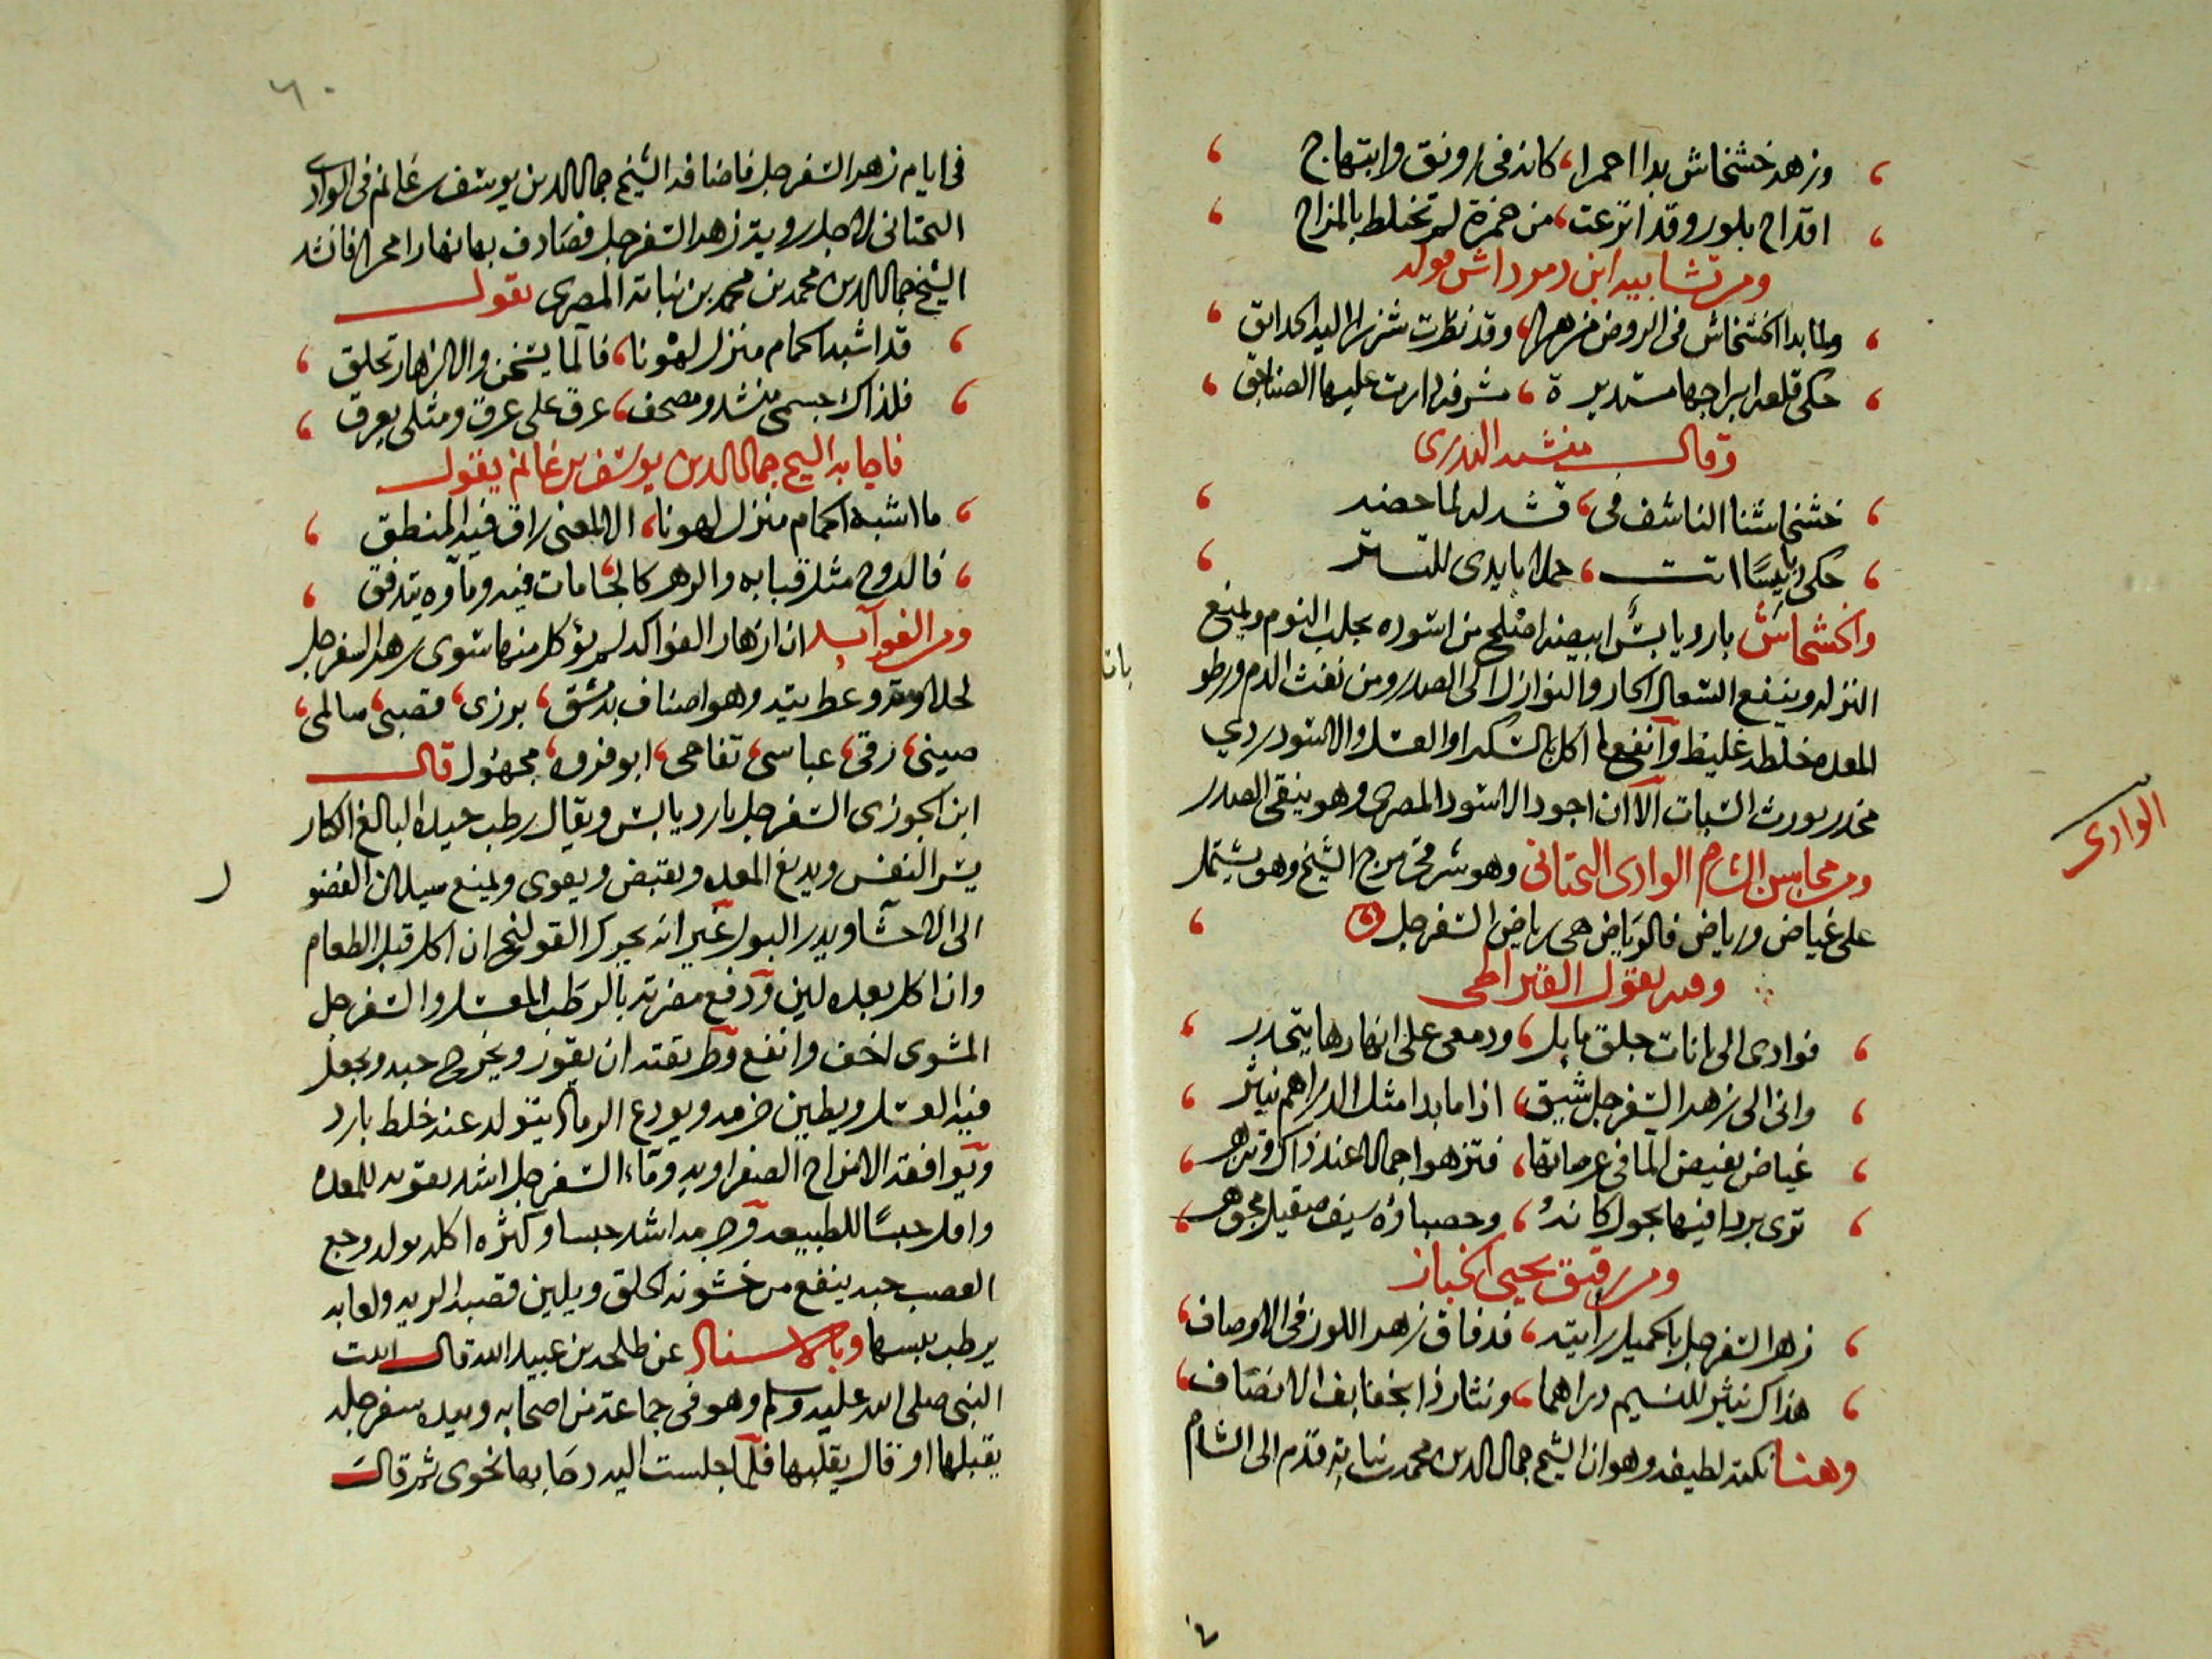 وزهد خشخاش بدا احمرا، كانه فى رونق وابتهاج
اقداح بلور وقد اترعت، من خمرة لم تختلط بالمزاج
ومن تشابيه ابن دمرداش قوله
ولما بدا الخشخاش فى الروض مزهرا، وقد نظرت شزرا اليه الحدايق
حكى قلعة ابراجها مستديرة، مشرفة دارت عليها الصناجق
وقال
خشخاشنا الناشف فى، قشر له لما حضر
حكى
والخشخاش بارد يابس ابيضه اصلح من اسوده يجلب النوم ويمنع
النزلة وينفع السعال الحار والنوازل الى الصدر ومن نفث الدم ورطو
المعده خلطه غليظ وانفع ما اكل بالسكر او العسل والاسود ردي
مخدر يورث السبات الا ان اجود الاسود المصرى وهو ينقى الصدر
ومن محاسن الشام الوادى التحتانى وهو شرقى مرج الشيخ وهو يشتمل
على غياض ورياض فالرياض هى رياض السفرجل
الوادى
وفيه يقول القيراطى
فوادى الى بانات جلق مايل، ودمعى على انهارها يتحدر
بانا
وانى الى زهر السفرجل شيق، اذا ما بدا مثل الدراهم ينثر
غياض يفيض الما فى عرصاتها، فتزهو جمالا عند ذاك وتزهر
ترى بردا فيها يجول كانه، وحصباؤه سيف صقيل مجوهر
ومن رقيق يحيى الخباز
زهر السفرجل يا خميل رايته، قد فاق زهر اللوز فى الاوصاف
هذاك نثير للنسيم دراهما، ونثار ذا بخفايف الانصاف
وهنا نكتة لطيفه وهو ان الشيخ جمال الدين محمد بن نباتة قدم الى الشام
٦٠
فى ايام زهر السفرجل فاضافه الشيخ جمال الدين يوسف بن غانم فى الوادى
التحتانى لاجل روية زهر السفرجل فصادف بها نهارا محرا فانشد
الشيخ جمال الدين محمد بن محمد بن نباتة المصرى يقول
قد اشبه الحمام منزل لهونا، فالما يسخن والازهار تحلق
فلذاك جسمى منشد ومصحف، عرق على عرق ومثلى يعرق
فاجابه الشيخ جمال الدين يوسف بن غانم يقول
ما اشبه الحمام منزل لهونا، الا لمعنى راق فيه المنطق
فالدوح مثل قبابه والزهر كالجامات فيه وماؤه يتدفق
ومن الفوآيد ان ازهار الفواكه لم يؤكل منها سوى زهر السفرجل
لحلاوته وعطريته وهو اصناف بدمشق، برزى، قصبى، سالمى،
صينى، رقى، عباسى، تفاحى، ابو فروه، مجهول قال
ابن الجوزى السفرجل بارد يابس ويقال رطب جيده البالغ الكبار
يسر النفس ويدبغ المعده ويقبض ويقوى ويمنع سيلان الفضو
ل
الى الاحشا ويدر البول غير انه يحرك القولنج ان اكل قبل الطعام
وان اكل بعده لين ودفع مضرته بالرطب المعسل والسفرجل
المشوى اخف وانفع وطريقته ان يقور ويخرج حبه ويجعل
فيه العسل ويطين جرمه ويودع الرماد يتولد عنه خلط بارد
ويوافقه الامزاج الصفراويه وماء السفرجل اشد تقويه للمعده
واقل حبسا للطبيعه وجرمه اشد حبسا وكثره اكله يولد وجع
العصب حبه ينفع من خشونة الحلق ويلين قصبة الريه ولعابه
يرطب يبسها وبالاسناد عن طلحه بن عبيد الله قال اتيت
النبى صلى الله عليه وسلم وهو فى جماعة من اصحابه وبيده سفرجله
يقبلها او قال يقلبها فلما جلست اليه دحا بها نحوى ثم قال